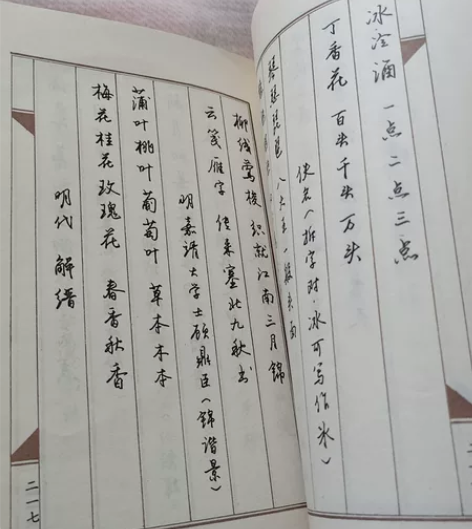 冰冷酒 一点二点三点
丁香花 百头千头万头
佚名(拆字对,冰可写作氷)
琴瑟琵琶 八大王一般头面
柳线莺梭 织就江南三月锦
云笺雁字 传来塞北九秋书
明嘉靖大学士顾鼎臣(锦谐景)
蒲叶桃叶葡萄叶 草本木本
梅花桂花玫瑰花 春香秋香
明代 解缙
二一七